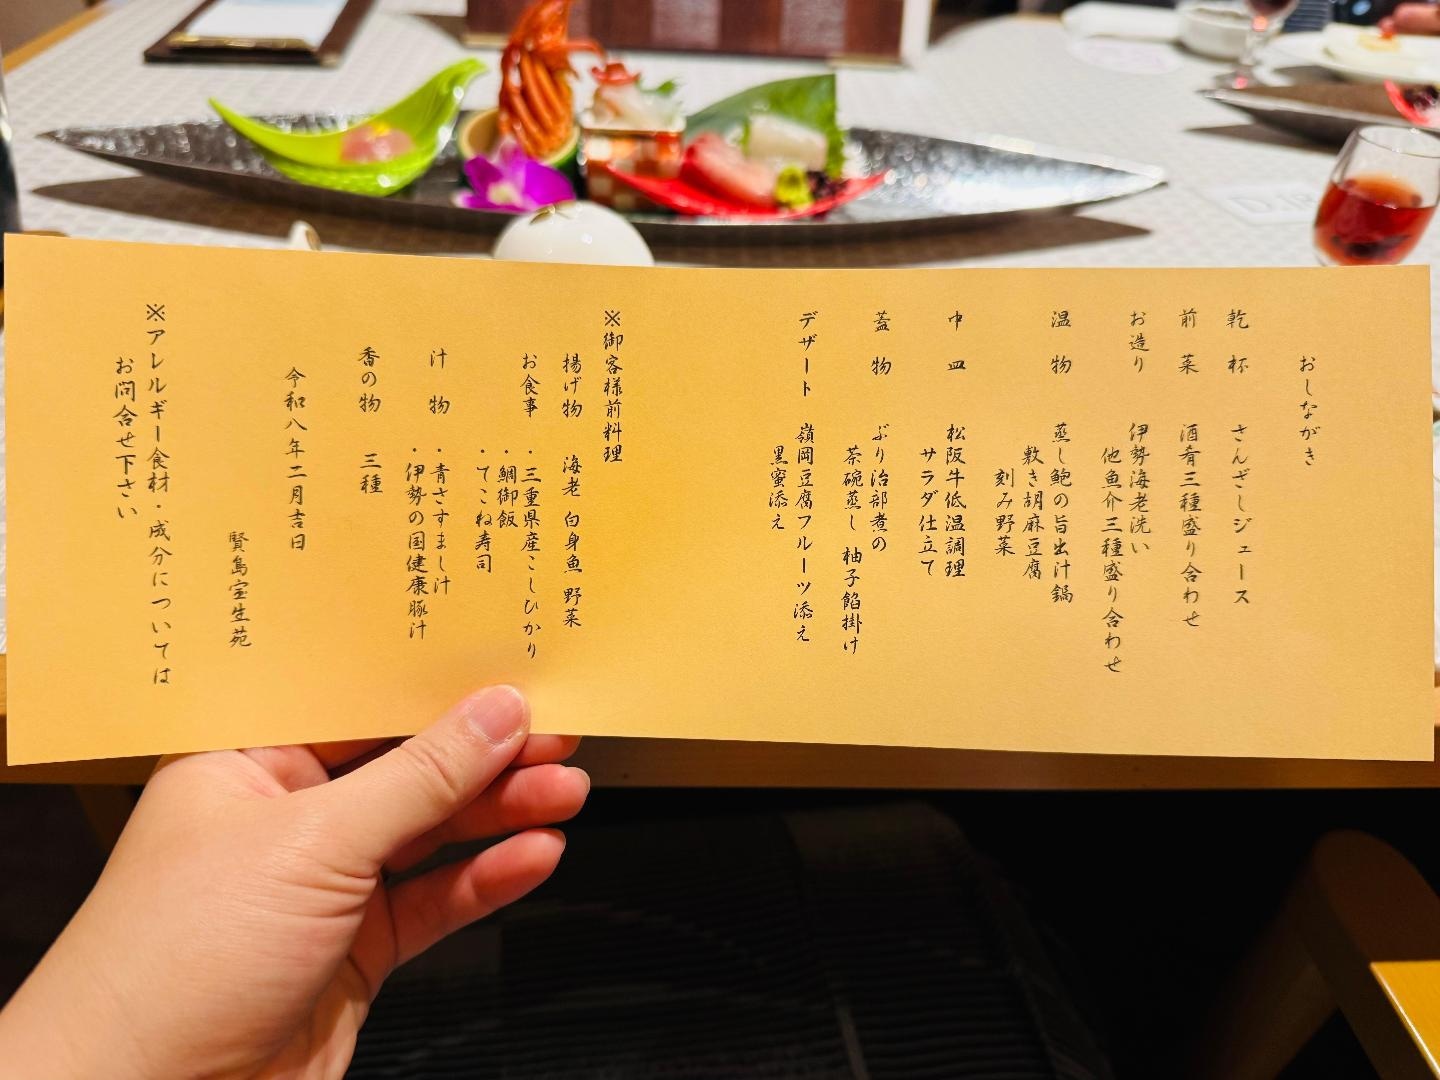 おしながき
乾 杯 さんざしジュース
前 菜 酒肴三種盛り合わせ
お造り 伊勢海老洗い
他魚介三種盛り合わせ
温 物 蒸し鮑の旨出汁鍋
敷き胡麻豆腐
刻み野菜
中 皿 松阪牛低温調理
サラダ仕立て
蓋 物 ぶり治部煮の
茶碗蒸し 柚子餡掛け
デザート 嶺岡豆腐フルーツ添え
黒蜜添え
※御客様前料理
揚げ物 海老 白身魚 野菜
お食事 ・三重県産こしひかり
・鯛御飯
・てこね寿司
汁 物 ・青さすまし汁
・伊勢の国健康豚汁
香の物 三種
令和八年二月吉日
賢島宝生苑
※アレルギー食材・成分については
お問合せ下さい